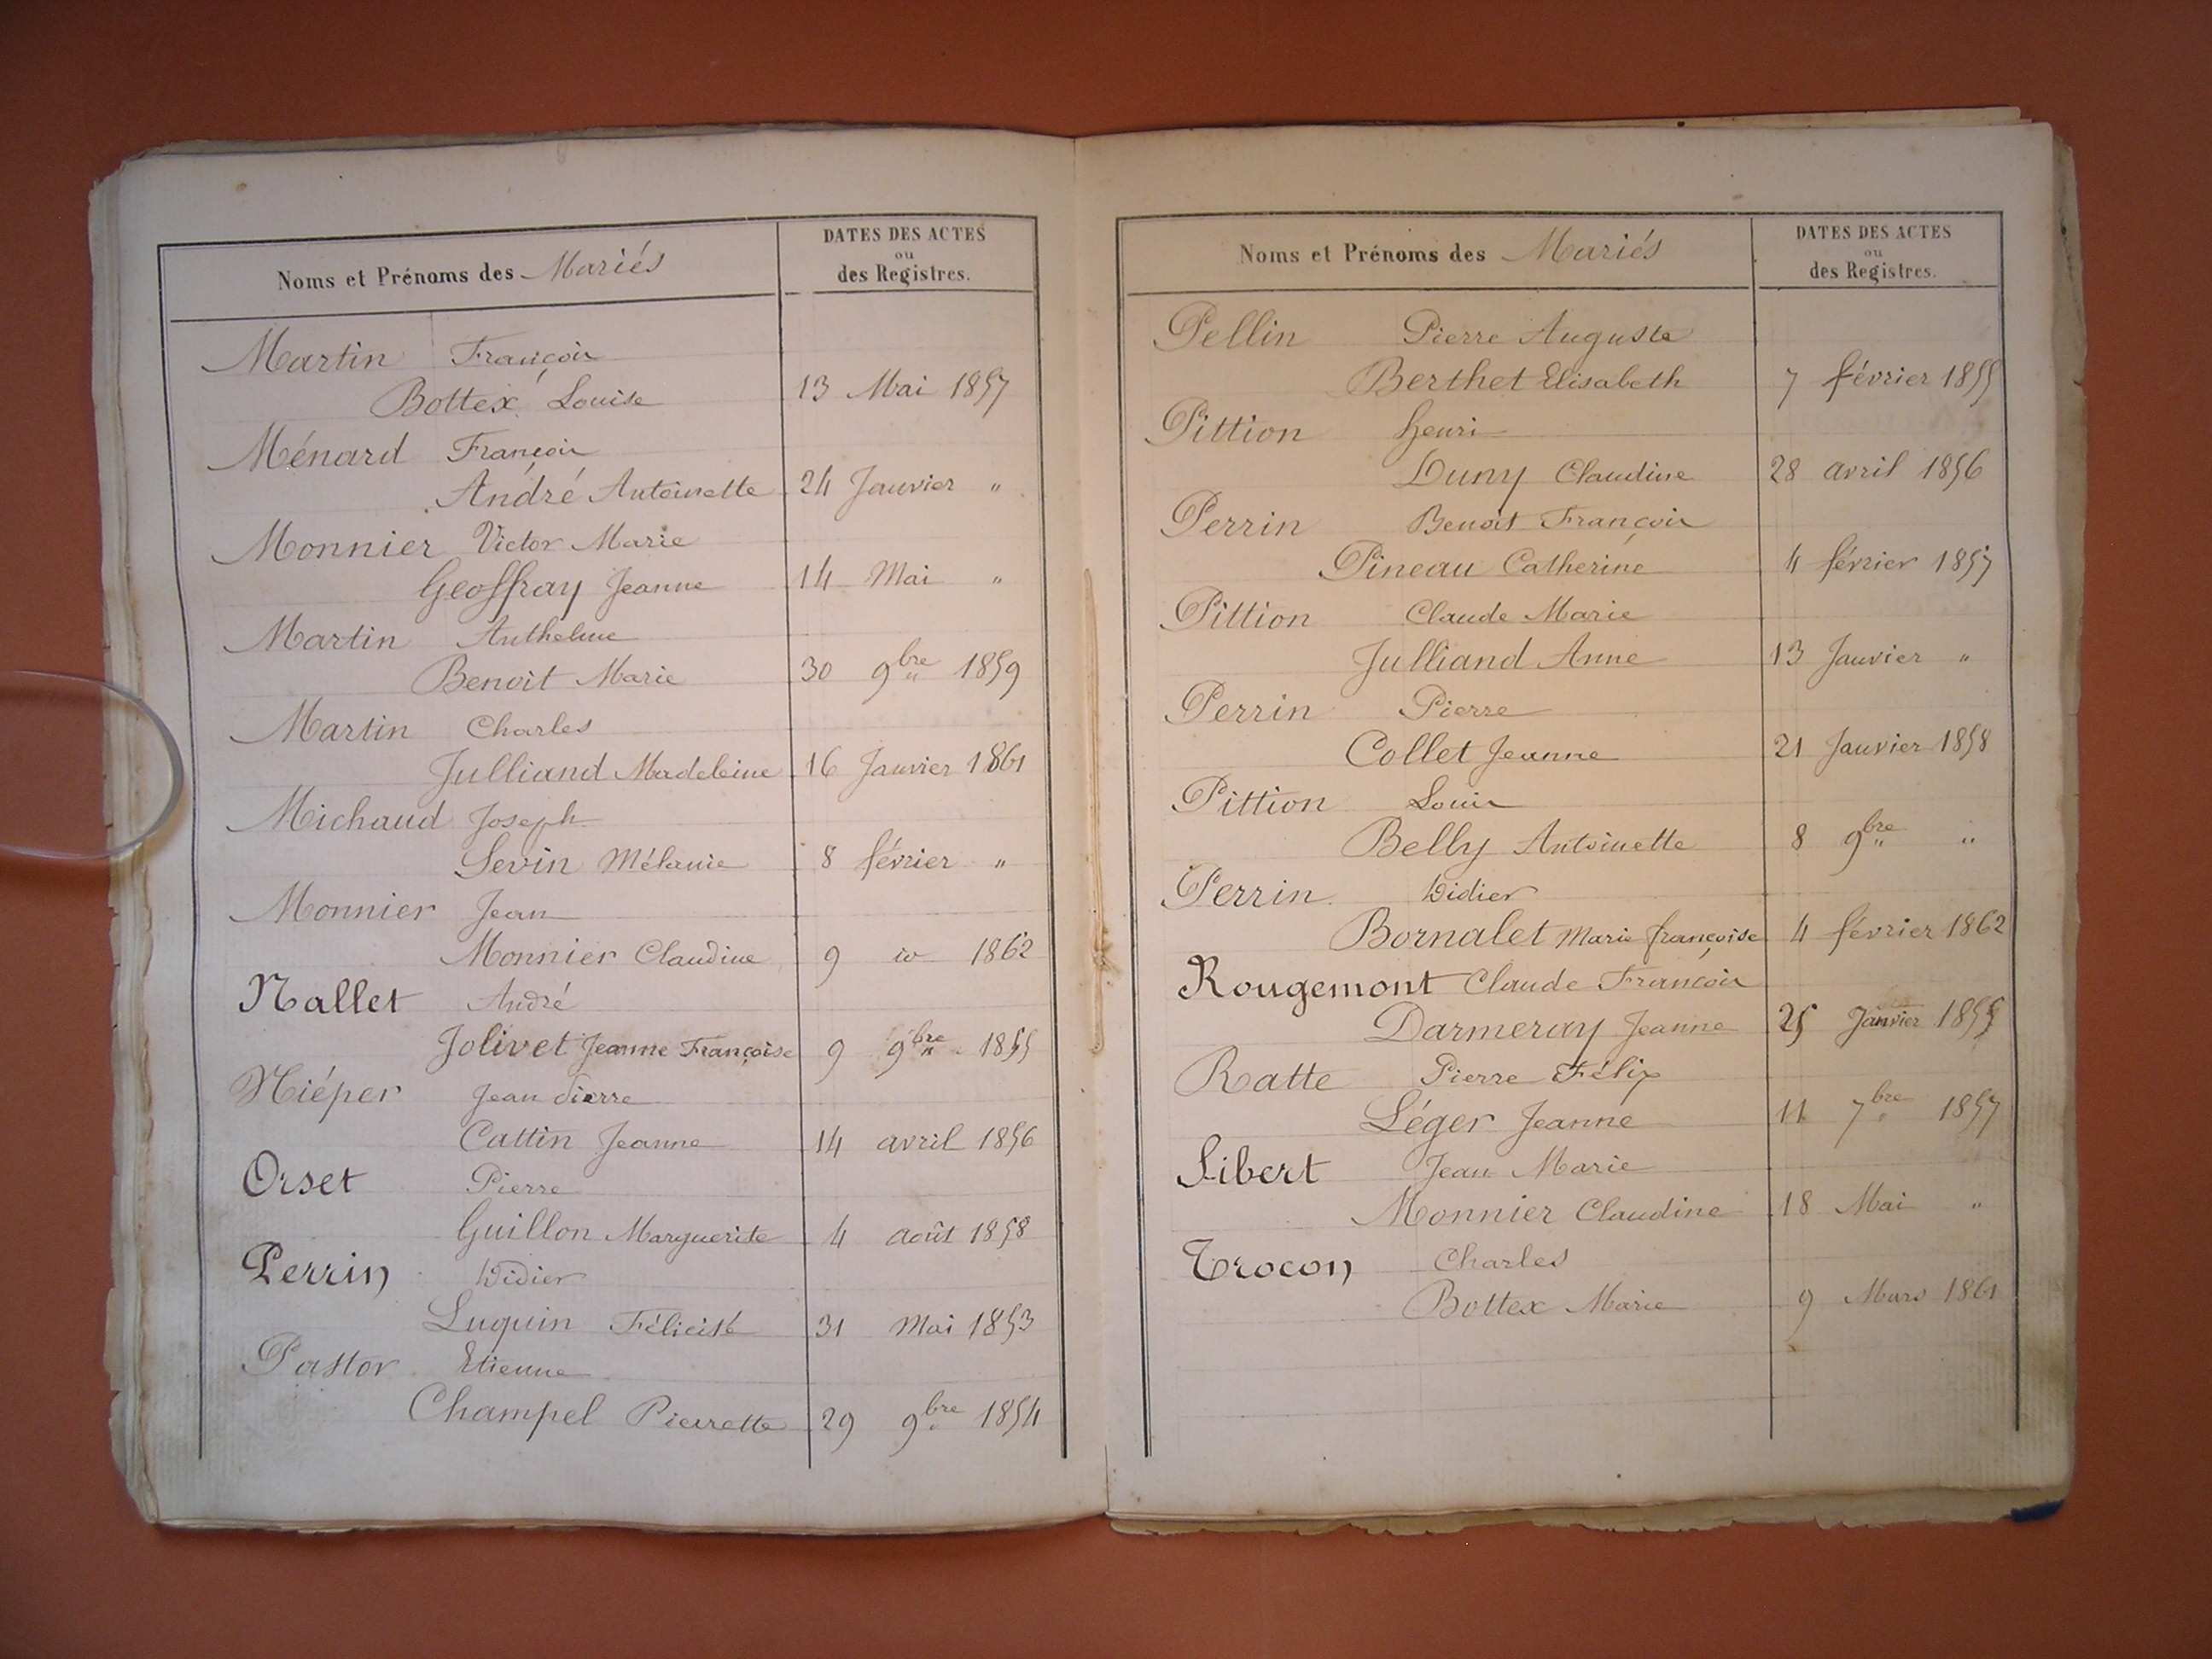 Noms et Prénoms des Mariés
DATES DES ACTES
ou
des Registres.
Martin François
Bottex Louise 13 Mai 1857
Ménard François
André Antoinette 24 Janvier "
Monnier Victor Marie
Geoffray Jeanne 14 Mai "
Martin Anthelme
Benoit Marie 30 9bre 1859
Martin Charles
Julliand Madeleine 16 Janvier 1861
Michaud Joseph
Sevin Mélanie 8 février "
Monnier Jean
Monnier Claudine 9 id 1862
Nallet André
Jolivet Jeanne Françoise 9 9bre 1855
Niéper Jean Pierre
Cattin Jeanne 14 avril 1856
Orset Pierre
Guillon Marguerite 4 août 1858
Perrin Didier
Luquin Félicité 31 Mai 1853
Pastor Etienne
Champel Pierrette 29 9bre 1854
Noms et Prénoms des Mariés
DATES DES ACTES
ou
des Registres.
Pellin Pierre Auguste
Berthet Elisabeth 7 février 1855
Pittion henri
Duny Claudine 28 avril 1856
Perrin Benoit François
Pineau Catherine 4 février 1857
Pittion Claude Marie
Julliand Anne 13 Janvier "
Perrin Pierre
Collet Jeanne 21 Janvier 1858
Pittion Louis
Belly Antoinette 8 9bre "
Perrin Didier
Bornalet Marie françoise 4 février 1862
Rougemont Claude François
Darmeray Jeanne 25 Janvier 1855
Ratte Pierre Félix
Léger Jeanne 11 7bre 1857
Sibert Jean Marie
Monnier Claudine 18 Mai "
Trocon Charles
Bottex Marie 9 Mars 1861